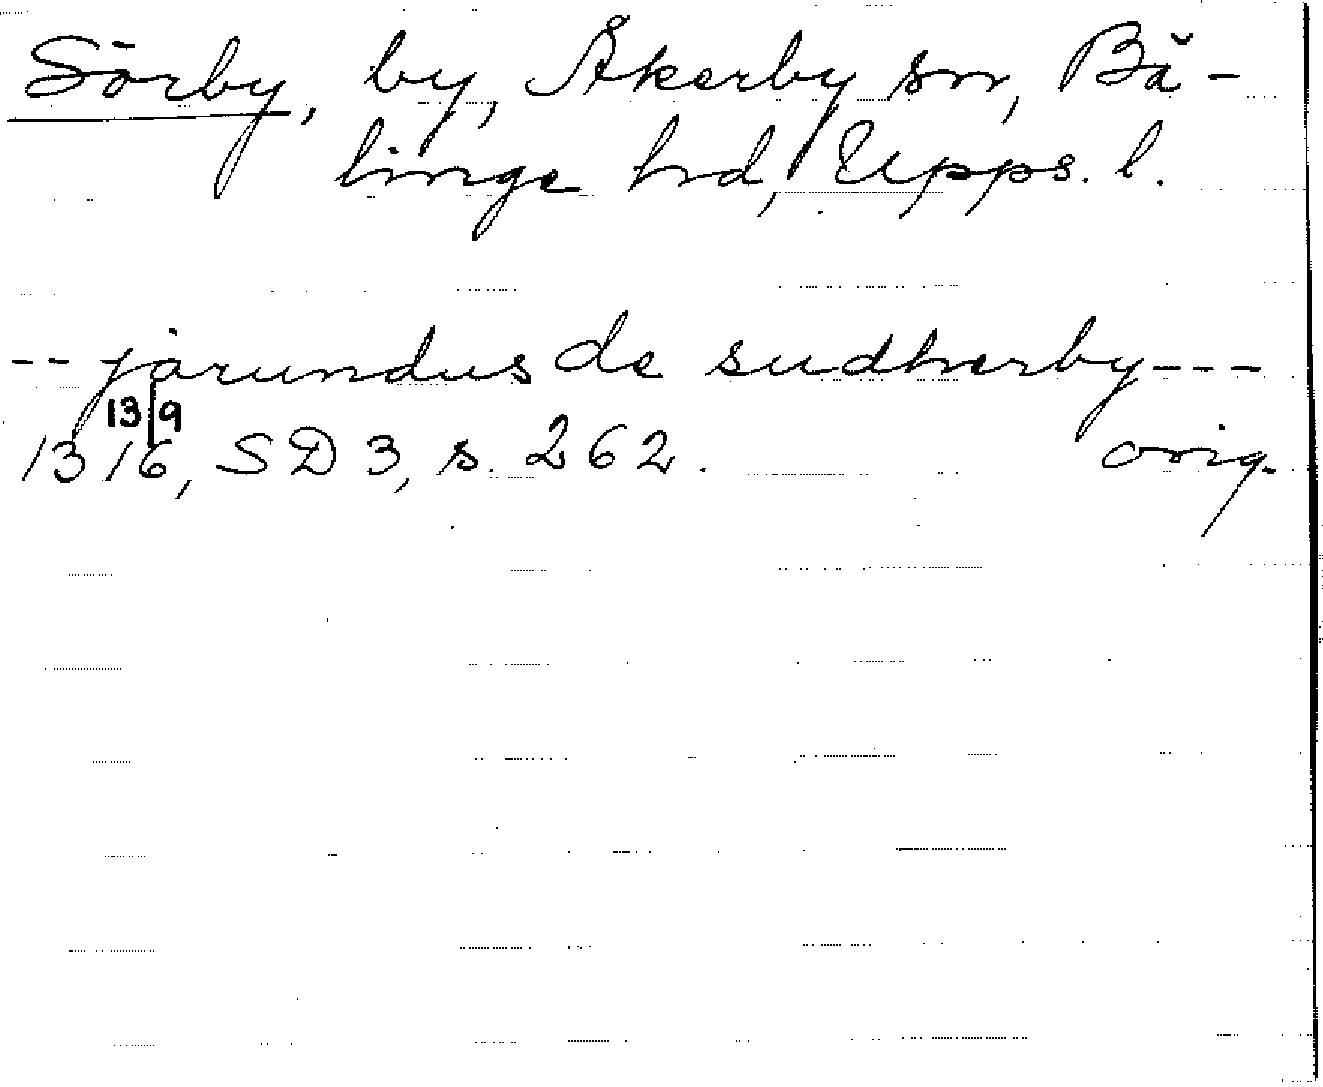 Sörby, by, Åkerby sn, Bä-
linge hd, Upps. l.
-- jàrundus de sudherby ---
13/9
1316, SD 3, s. 262. orig.